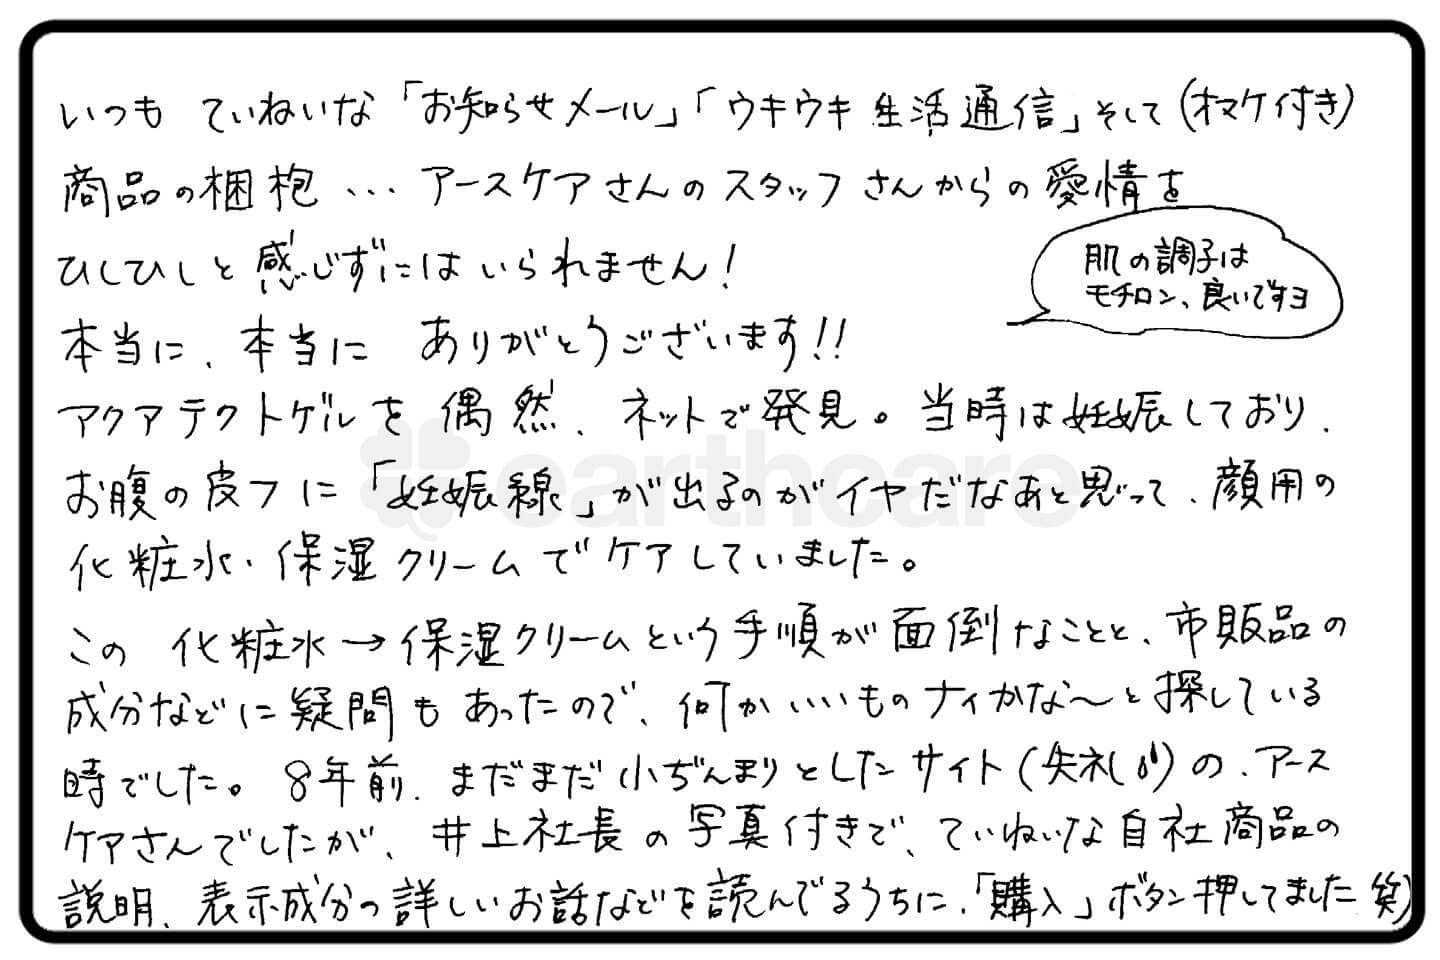 いつも ていねいな「お知らせメール」「ウキウキ生活通信」そして(オマケ付き)
商品の梱枹…アースケアさんのスタッフさんからの愛情を
ひしひしと感じずにはいられません!
肌の調子は
モチロン、良いですヨ
本当に、本当に ありがとうございます!!
アクアテクトゲルを偶然、ネットで発見。当時は妊娠しており、
お腹の皮フに「妊娠線」が出るのがイヤだなあと思って、顔用の
化粧水・保湿クリームでケアしていました。
この 化粧水→保湿クリームという手順が面倒なことと、市販品の
成分などに疑問もあったので、何かいいものナイかな〜と探している
時でした。8年前、まだまだ小ぢんまりとしたサイト(失礼)の、アース
ケアさんでしたが、井上社長の写真付きで、ていねいな自社商品の
説明、表示成分の詳しいお話などを読んでるうちに、「購入」ボタン押してました笑)
earthcare